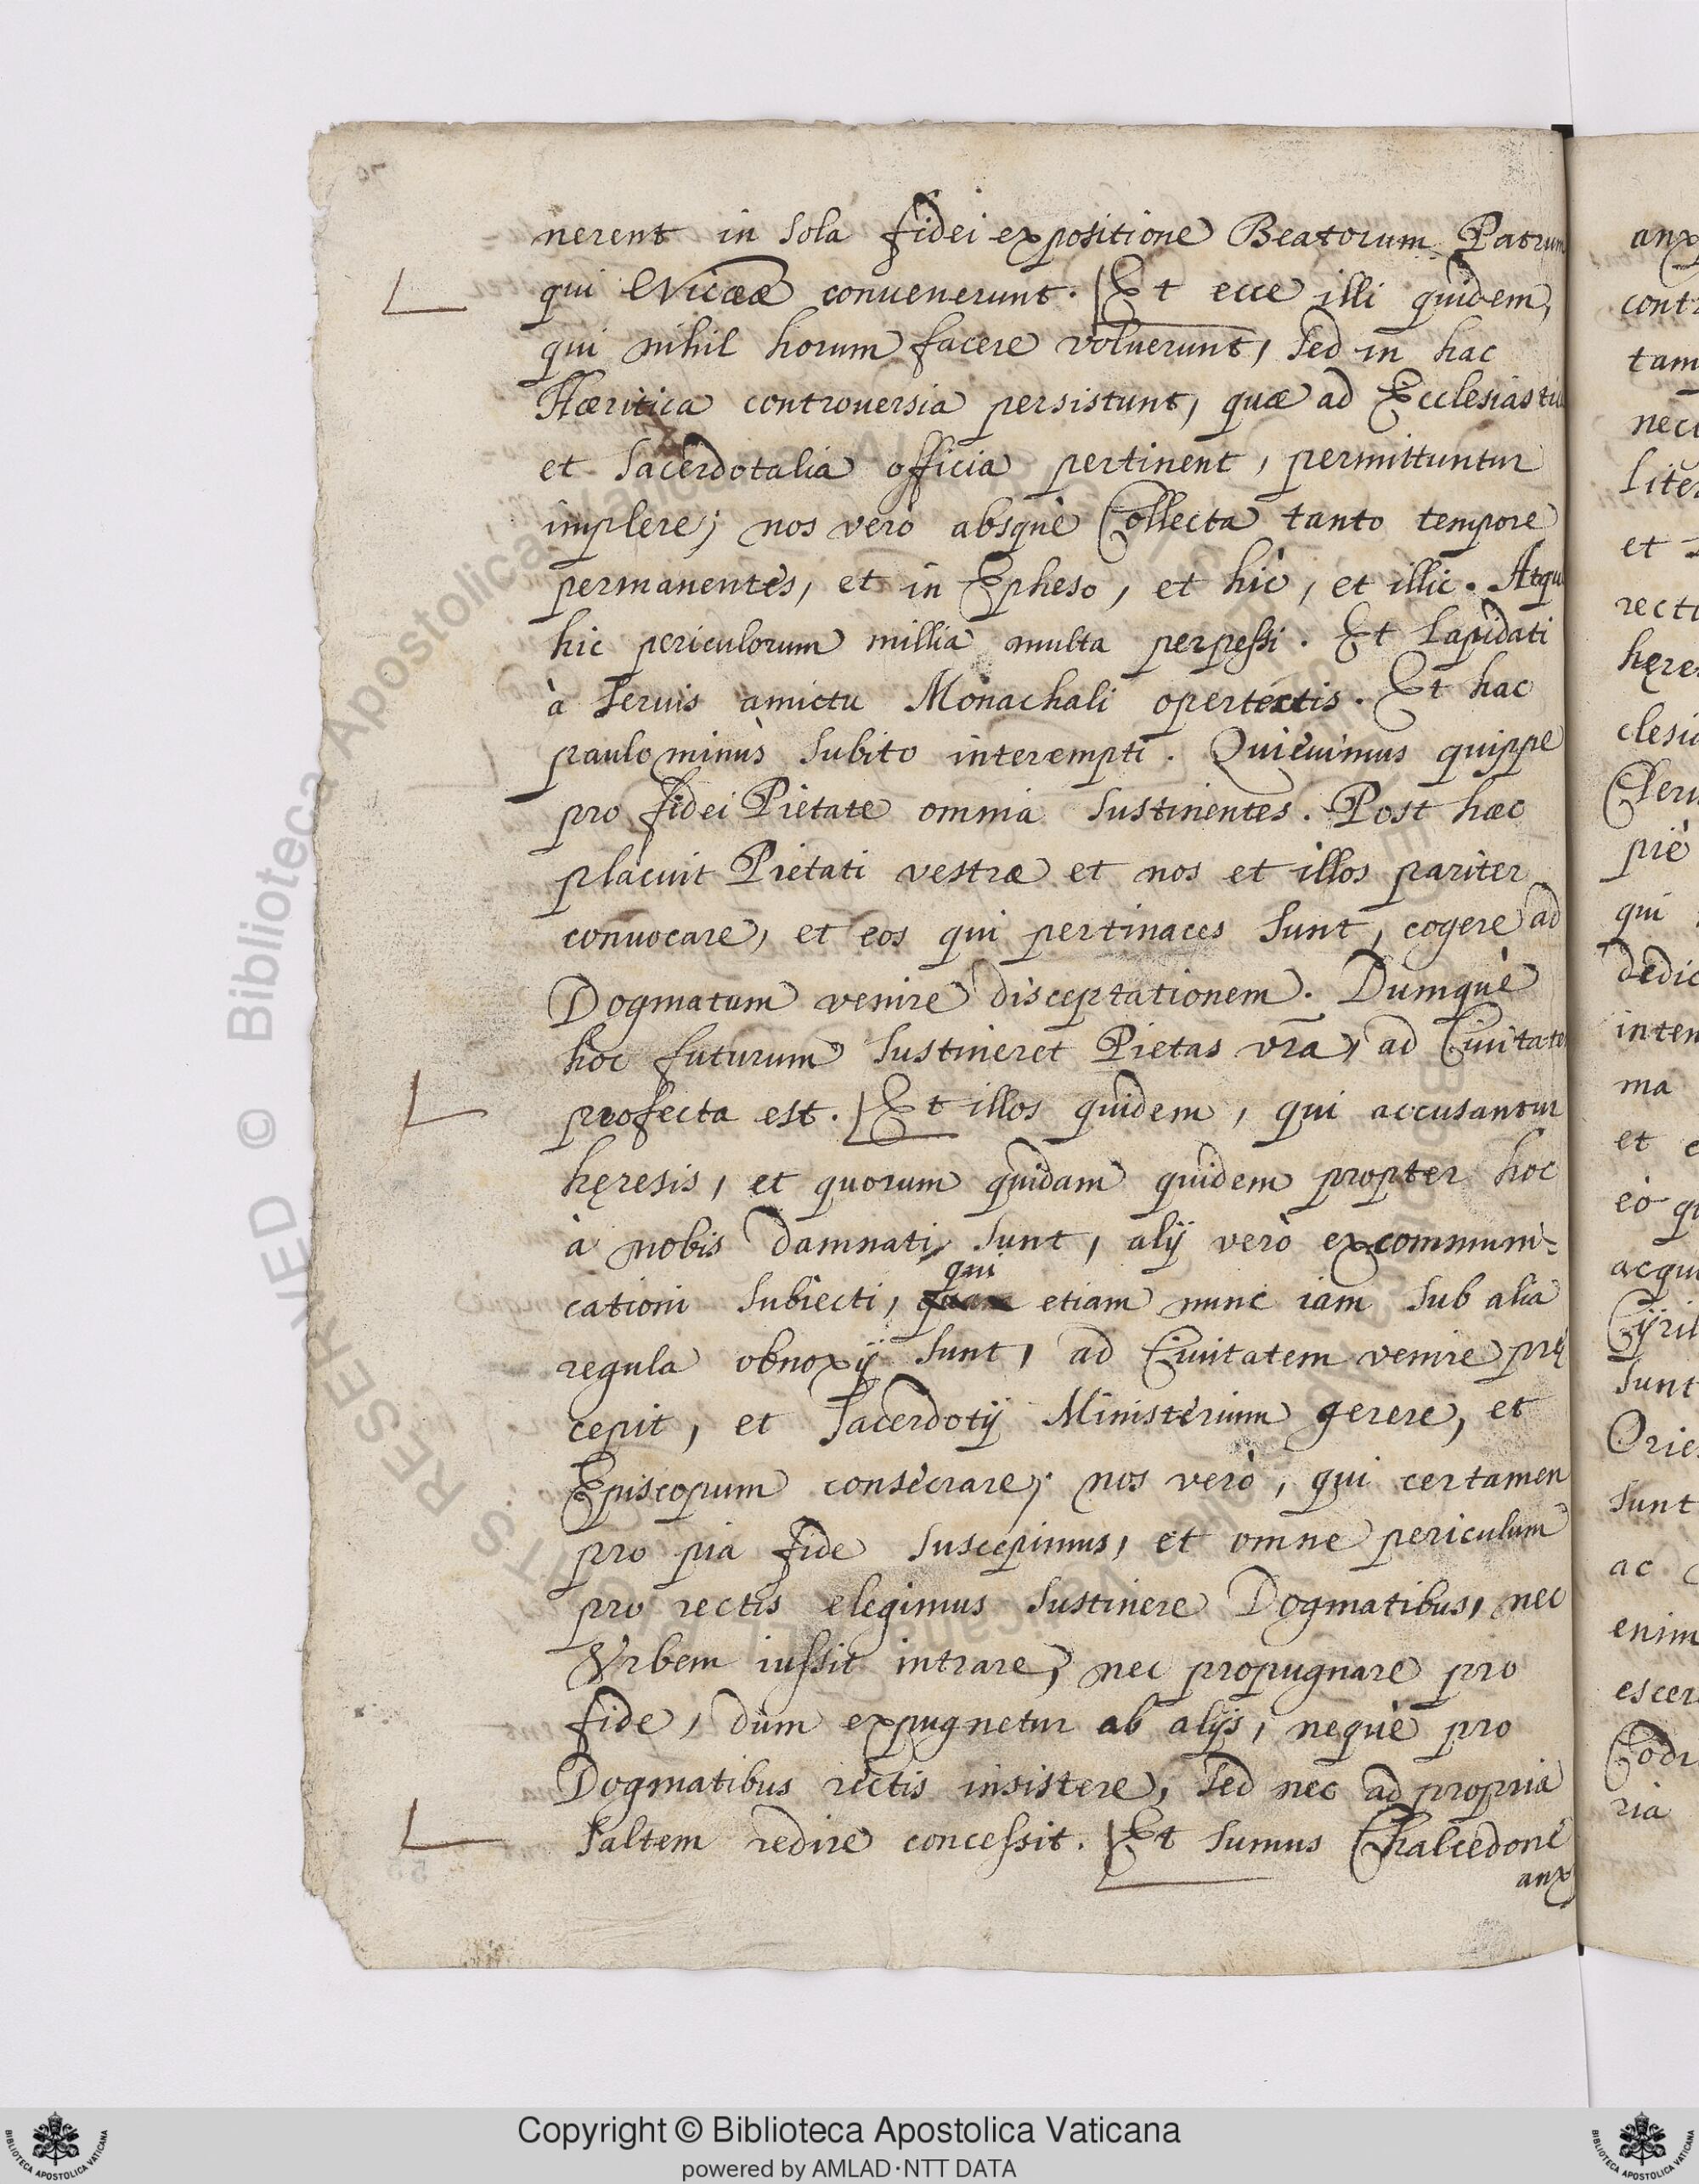 nerent in sola fidei expositione Beatorum Patrum
qui Nicææ conuenerunt. Et ecce illi quidem,
qui nihil horum facere voluerunt, sed in hac
Hæritica controuersia persistunt, quæ ad Ecclesiastic
et Sacerdotalia officia pertinent, permittuntur
implere; nos verò absquè Collecta tanto tempore
permanentes, et in Epheso, et hìc, et illic. Atqu
hic periculorum millia multa perpessi. Et Lapidati
à seruis amictu Monachali opertectis. Et hac
paulominùs subito interempti. Quieuimus quippe
pro fidei Pietate omnia sustinentes. Post hæc
placuit Pietati vestræ et nos et illos pariter
conuocare, et eos qui pertinaces sunt, cogere ad
Dogmatum venire disceptationem. Dumquè
hoc futurum sustineret Pietas vra, ad Ciuitatē
profecta est. Et illos quidem, qui accusantur
hęresis, et quorum quidam quidem propter hoc
à nobis damnati sunt, alij verò excommuni=
cationi subiecti, qui etiam nunc iam sub alia
regula obnoxij sunt, ad Ciuitatem venire prę
cepit, et Sacerdotij Ministerium gerere, et
Episcopum consecrare; nos verò, qui certamen
pro pia fide suscepimus, et omne periculum
pro rectis elegimus sustinere Dogmatibus, nec
Vrbem iussit intrare, nec propugnare pro
fide, dum expugnetur ab alijs, nequè pro
Dogmatibus rectis insistere, sed nec ad propria
saltem redire concessit. Et sumus Chalcedone
anx
anx
contr
tam
nec
liter
et
rect
hęre
clesia
Cleru
piè
qui
dedic
inten
ma
et
eò qu
acqui
Cyril
sunt
Orie
sunt
ac
enim
escer
ria
Copyright © Biblioteca Apostolica Vaticana
powered by AMLAD·NTT DATA
© Biblioteca Apostolica Vaticana ALL RIGHTS RESERVED
BIBLIOTECA APOSTOLICA VATICANA
BIBLIOTECA APOSTOLICA VATICANA